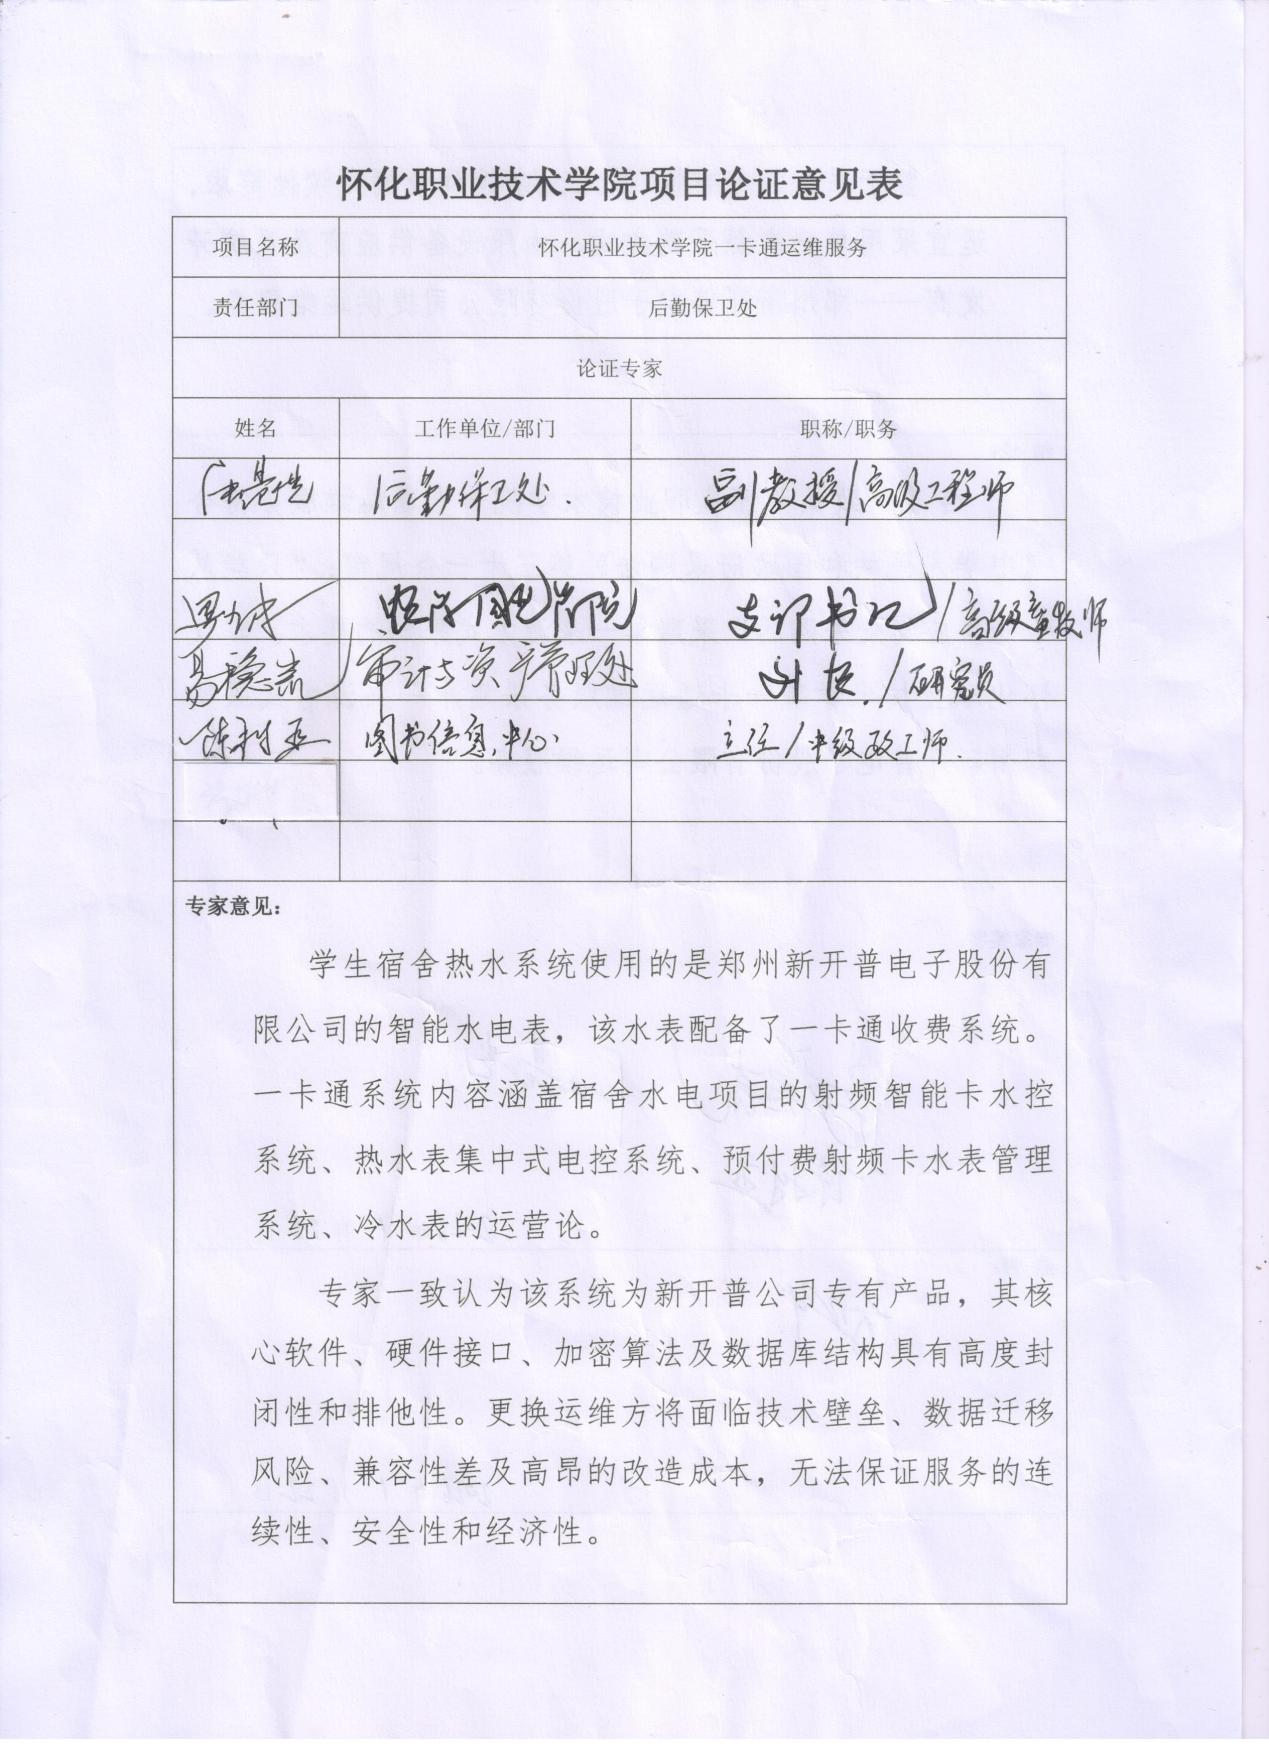 怀化职业技术学院项目论证意见表
项目名称 怀化职业技术学院一卡通运维服务
责任部门 后勤保卫处
论证专家
姓名 工作单位/部门 职称/职务
后勤保卫处. 副教授/高级工程师
支部书记/高级畜牧师
审计与资产管理处 /研究员
陈利亚 图书信息中心 主任/中级政工师.
专家意见：
学生宿舍热水系统使用的是郑州新开普电子股份有
限公司的智能水电表，该水表配备了一卡通收费系统。
一卡通系统内容涵盖宿舍水电项目的射频智能卡水控
系统、热水表集中式电控系统、预付费射频卡水表管理
系统、冷水表的运营论。
专家一致认为该系统为新开普公司专有产品，其核
心软件、硬件接口、加密算法及数据库结构具有高度封
闭性和排他性。更换运维方将面临技术壁垒、数据迁移
风险、兼容性差及高昂的改造成本，无法保证服务的连
续性、安全性和经济性。